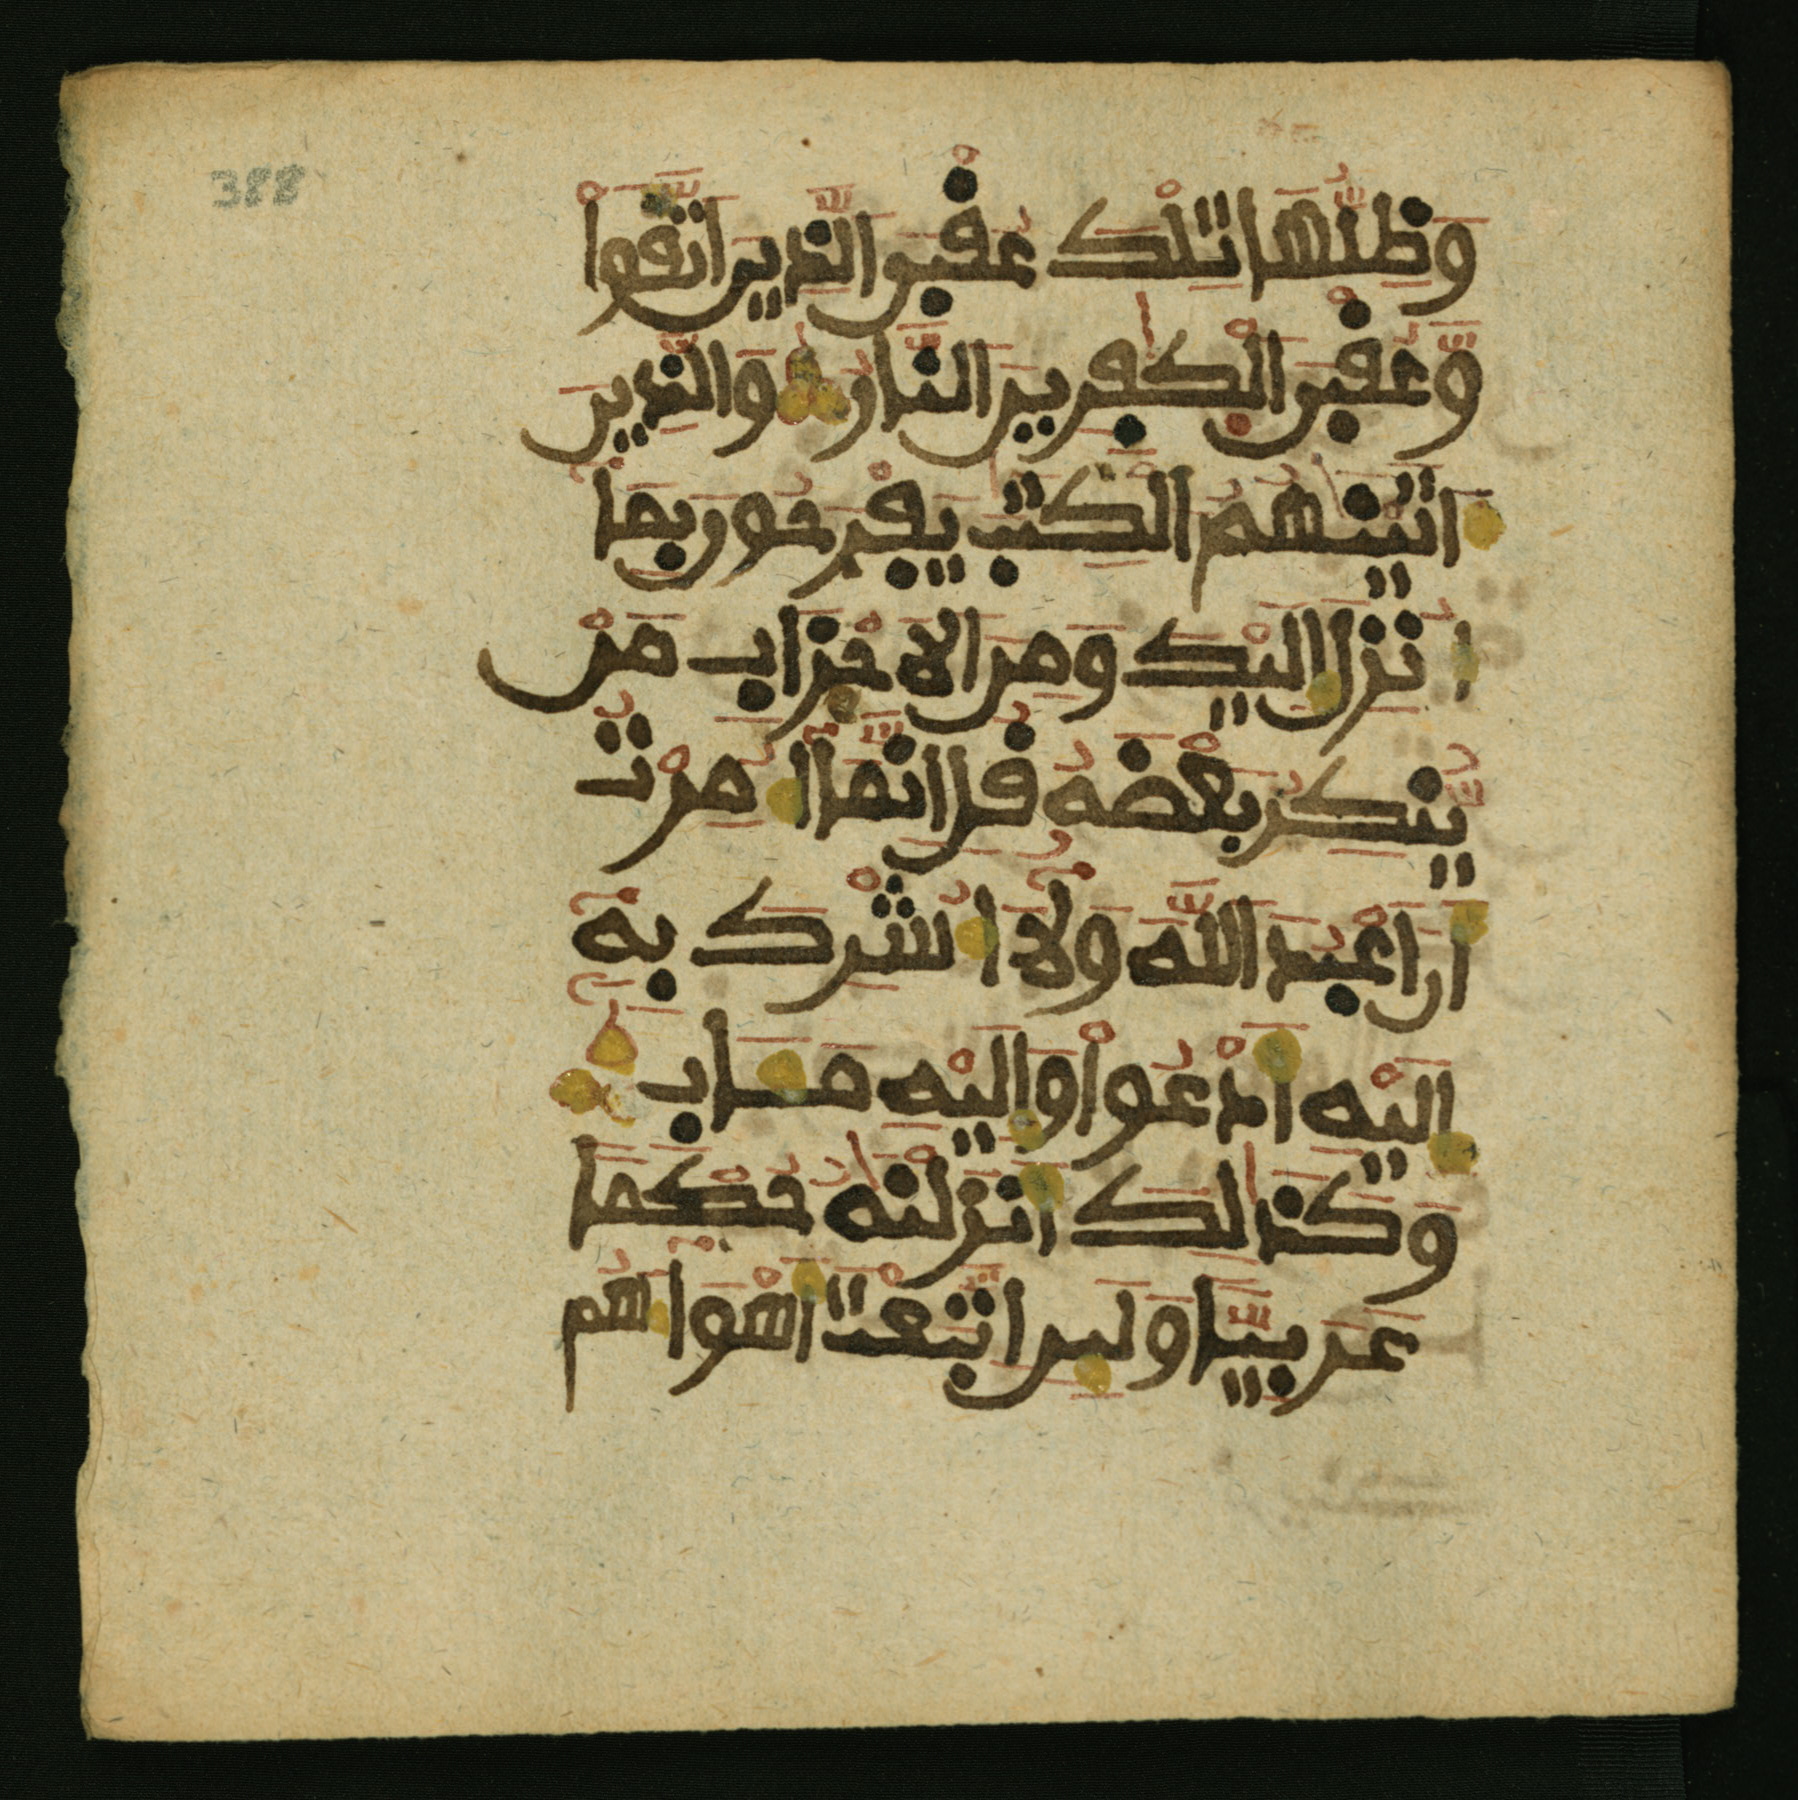 388
وَظِلُّهَا تِلْكَ عُقْبَى الَّذِينَ اتَّقَوْا
وَّعُقْبَى الْكٰفِرِينَ النَّارُ وَالَّذِينَ
ءَاتَيْنٰهُمُ الْكِتٰبَ يَفْرَحُونَ بِمَا
أُنزِلَ إِلَيْكَ وَمِنَ الْأَحْزَابِ مَنْ
يُّنكِرُ بَعْضَهُ قُلْ إِنَّمَا أُمِرْتُ
أَنْ أَعْبُدَ اللَّهَ وَلَا أُشْرِكَ بِهِ
إِلَيْهِ أَدْعُوا وَإِلَيْهِ مَـَٔابِ
وَكَذَالِكَ أَنزَلْنٰهُ حُكْمًا
عَرَبِيًّا وَلَئِنِ اتَّبَعْتَ أَهْوَاءَهُم